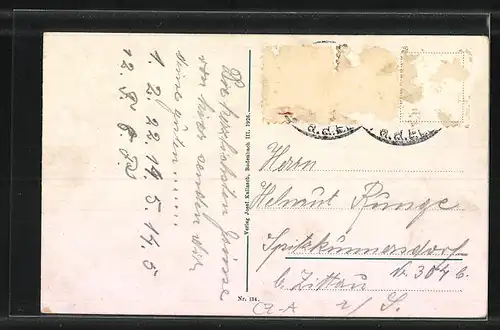 Die herzlichsten Grüsse
von hier senden Dir,
Deine guten ........
1. 2. 22. 19. 5. 14. 5
12. 5. 6 
Verlag Josef Kallasch, Bodenbach III. 1926.
Nr. 134.
a. d. E.
a. d. E.
Herrn
Helmut Runge
Spitzkunnersdorf
Nr. 304 b.
b. Zittau
i/S.